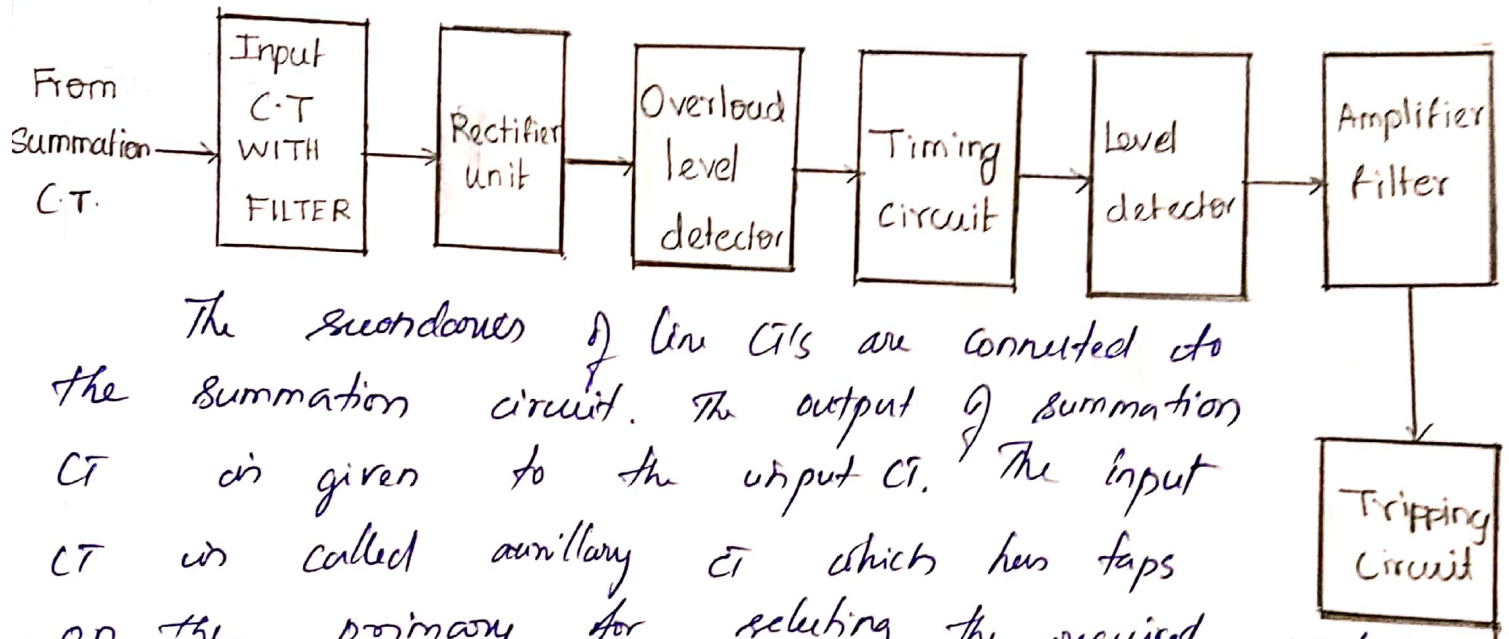 From
Summation
C.T.
Input
C.T
WITH
FILTER
Rectifier
unit
Overload
level
detector
Timing
circuit
Level
detector
Amplifier
filter
Tripping
Circuit
The secondaries of line CT's are connected to
the summation circuit. The output of summation
CT is given to the input CT. The input
CT is called auxillary CT which has taps
on the primary for selecting the required